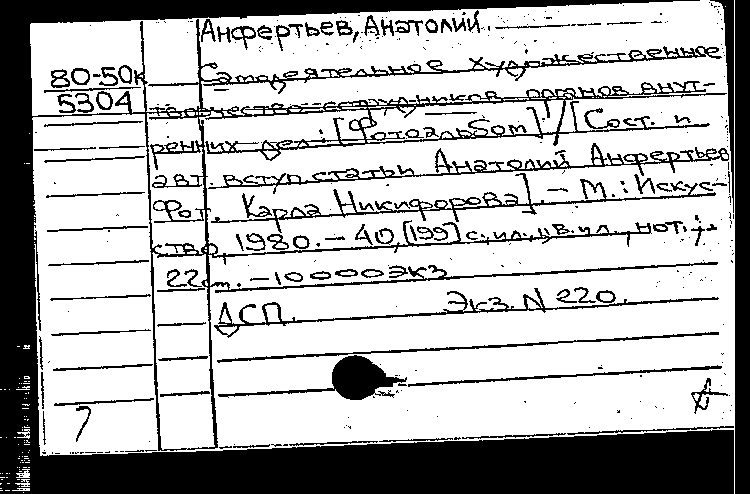 Анфертьев, Анатолий.
80-50к Самодеятельное художественное
5304 творчество сотрудников органов внут-
ренних дел: [Фотоальбом] / [Сост. и
авт. вступ. статьи Анатолий Анфертьев
Фот. Карла Никифорова]. — М.: Искус-
ство, 1980. — 40, [199] с., ил., цв. ил., нот.;
22 см. — 10000 экз
ДСП. Экз. N 220.
7